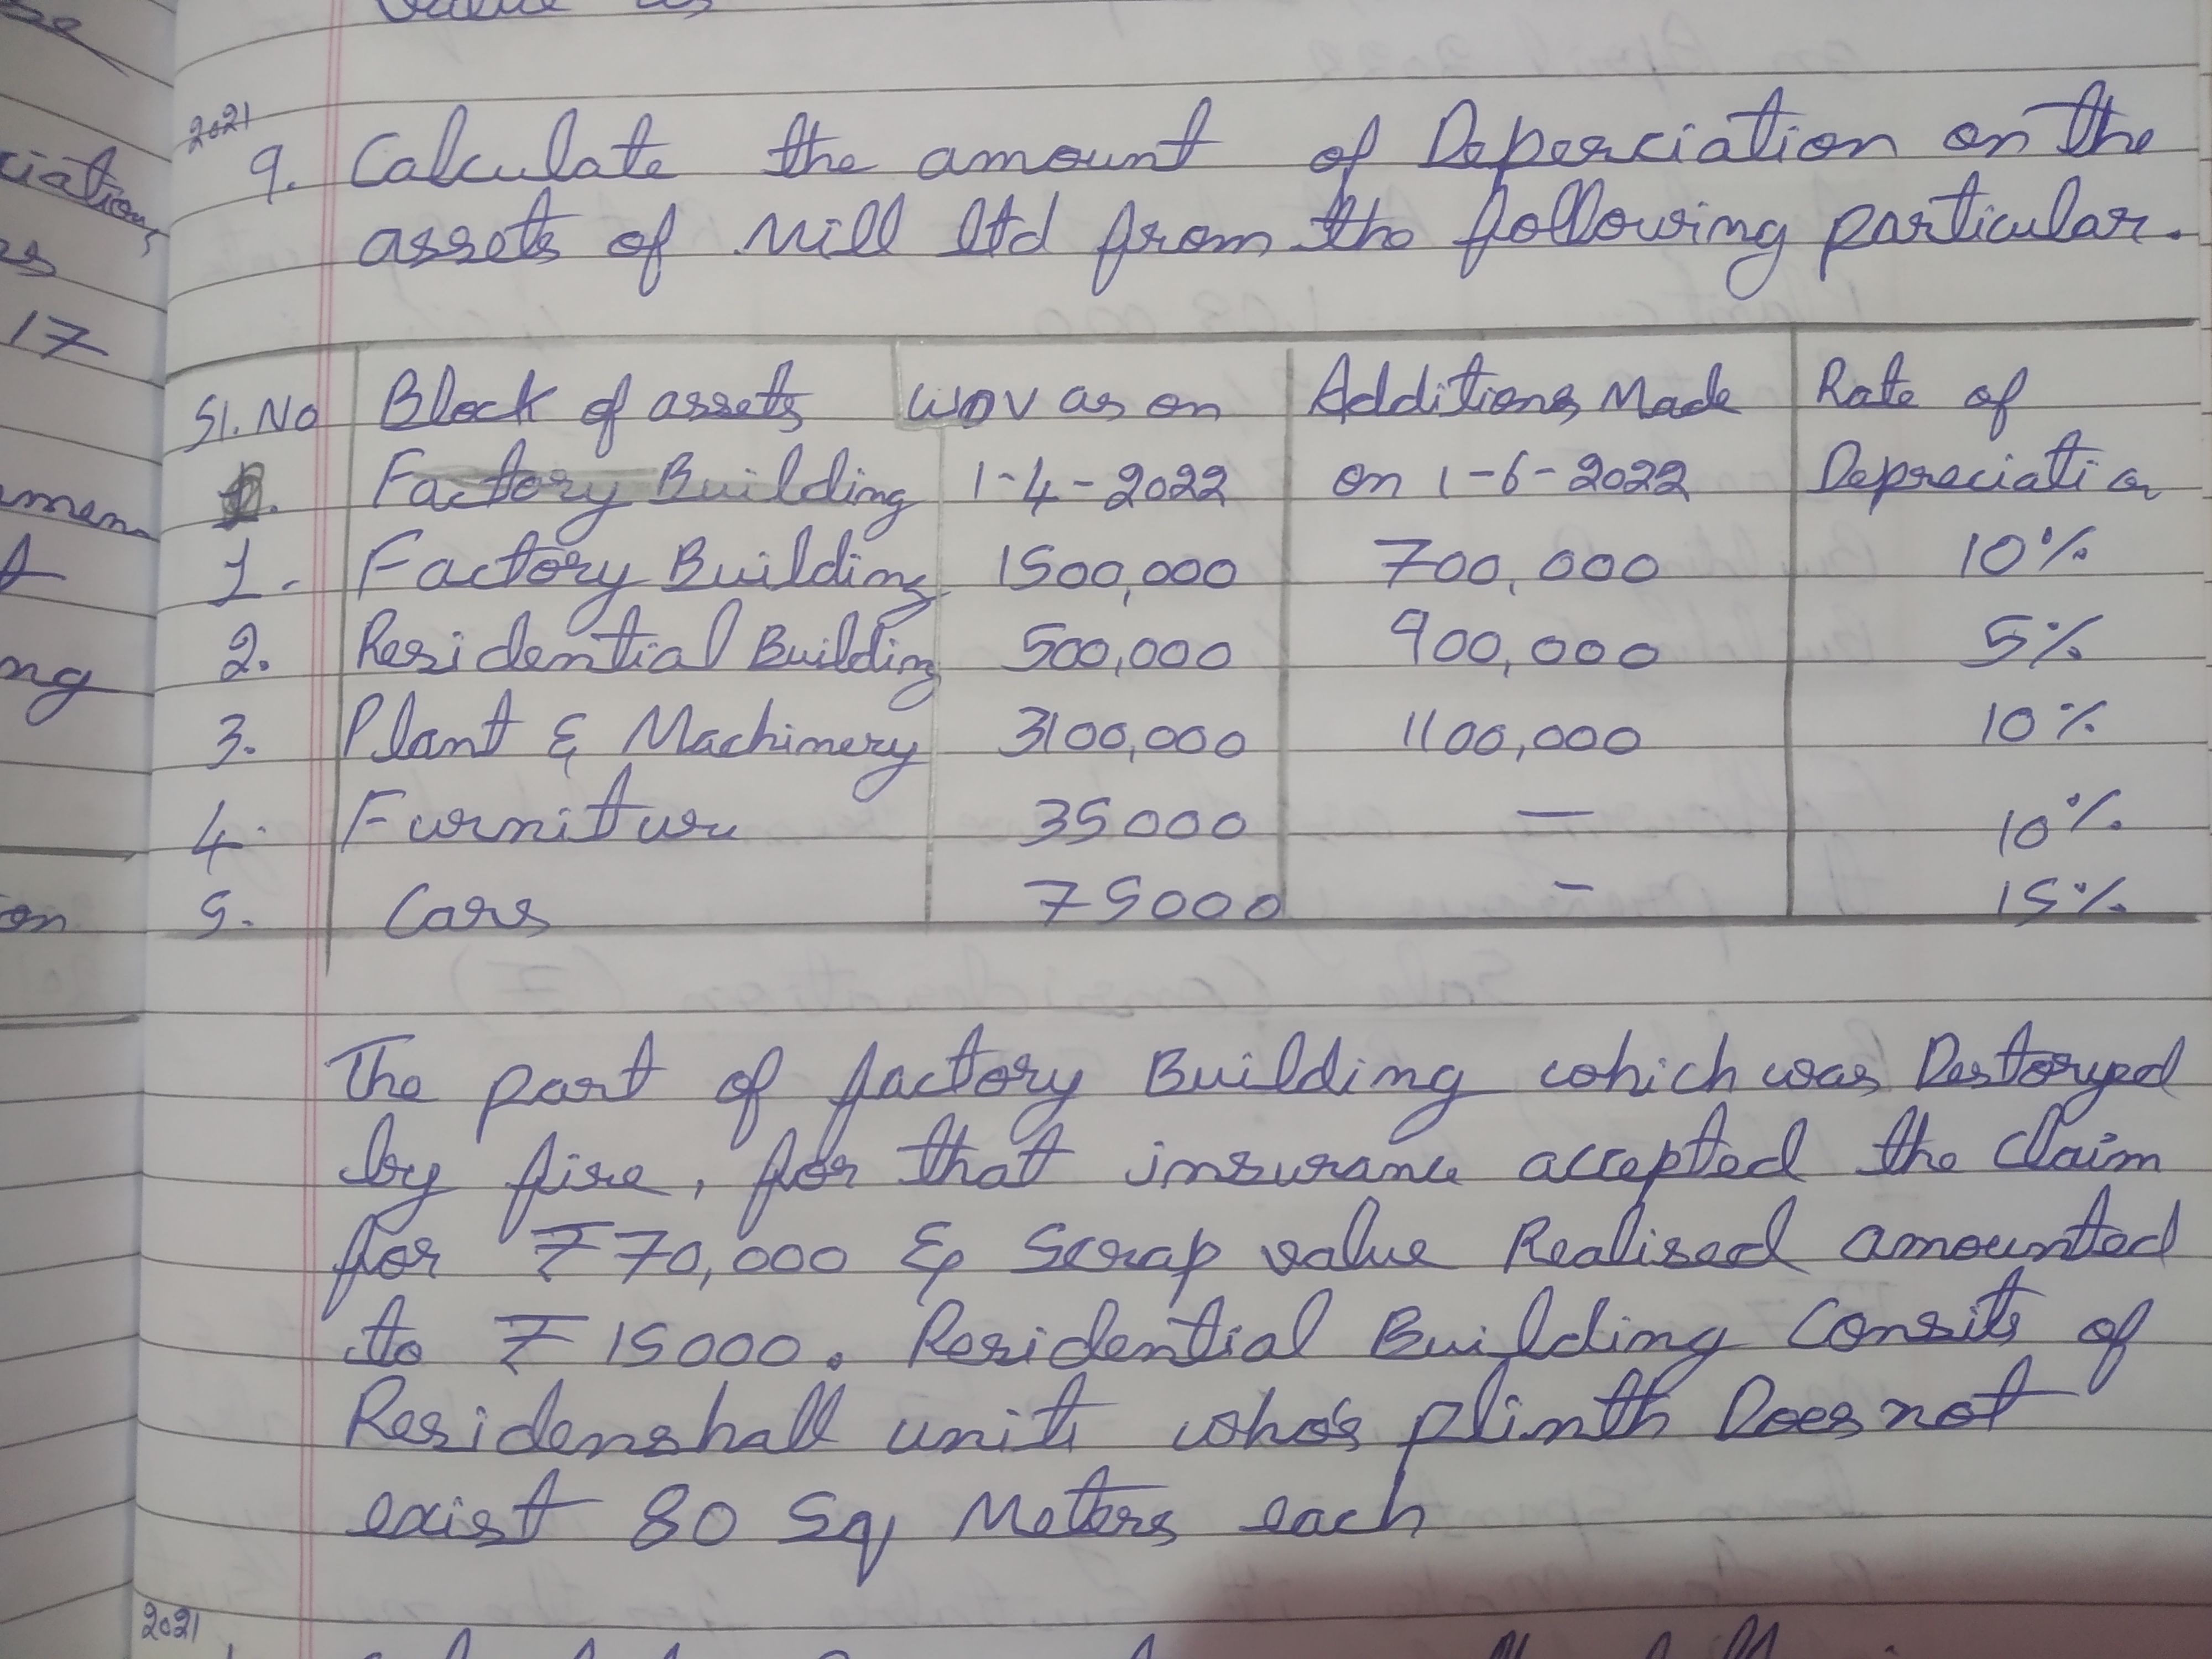 ciation,
17
amen
ng
on
2021
9. Calculate the amount of Deperciation on the
assets of Mill ltd from the following particular.
Sl. No Block of assets WDV as on Additions Made Rate of
Factory Building 1-4-2022 on 1-6-2022 Depreciation
1. Factory Building 1500,000 700,000 10%
2. Residential Building 500,000 900,000 5%
3. Plant & Machinery 3100,000 1100,000 10%
4. Furniture 35000 — 10%
5. Cars 75000 — 15%
The part of factory Building which was Destoryed
by fire, for that insurance accepted the claim
for ₹70,000 & Scrap value Realised amounted
to ₹15000. Residential Building Consits of
Residenshall units who's plinth Does not
exist 80 Sq Meters each
2021